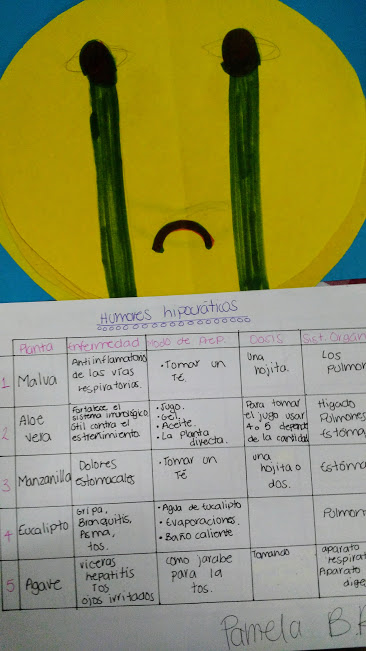 Humores hipocráticos
Planta Enfermedad Modo de Prep. Docis Sist. Orgán
1 Malva
Antiinflamatorio
de las vías
respiratorias.
• Tomar un
Té.
una
hojita.
Los
Pulmon
2 Aloe
vera
Fortalece el
sistema inmunológico
útil contra el
estreñimiento
• Jugo.
• Gel.
• Aceite.
• La planta
directa.
Para tomar
el jugo usar
4 o 5 depende
de la cantidad
Higado
Pulmones
Estóma
3 Manzanilla
Dolores
estomacales
• Tomar un
Té
una
hojita o
dos.
Estóma
4 Eucalipto
Gripa,
Bronquitis,
Asma,
tos.
• Agua de eucalipto
• Evaporaciones.
• Baño caliente
Pulmon
5 Agave
viceras
hepatitis
Tos
ojos irritados
como jarabe
para la
tos.
Tomando
aparato
respirat
Aparato
dige
Pamela B.R